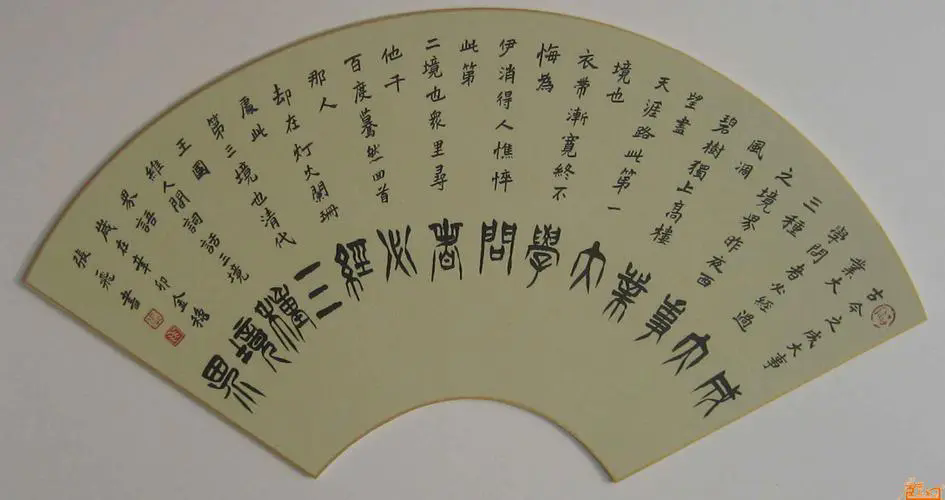 古今之成大事
業大
學問者必經過
三種
之境界昨夜西
風凋
碧樹獨上高樓
望盡
天涯路此第一
境也
衣帶漸寬終不
悔為
伊消得人憔悴
此第
二境也衆里尋
他千
百度驀然回首
那人
却在灯火闌珊
處此
第三境也清代
王國
維人間詞話三境
界語
歲在辛卯金秋
張書
成大事業大學問者必經三種境界